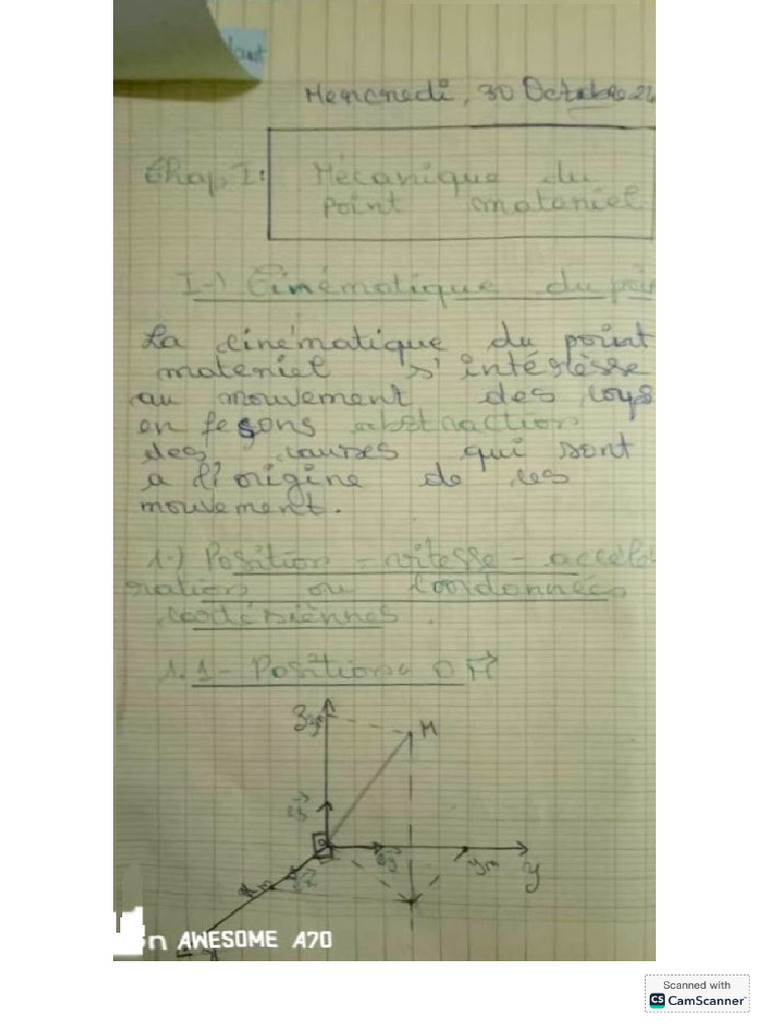 Mercredi, 30 Octobre 24
Chap I:
Mécanique du
point materiel
I-) Cinématique du poin
La cinématique du point
materiel s'intérèsse
au mouvement des corps
en fesons abstraction
des causes qui sont
a l'origine de ces
mouvement.
1-) Position - vitesse - accélé
ration ou Coordonnées
cartésiènnes.
1.1- Position OM
M
y
AWESOME A70
Scanned with
CS CamScanner